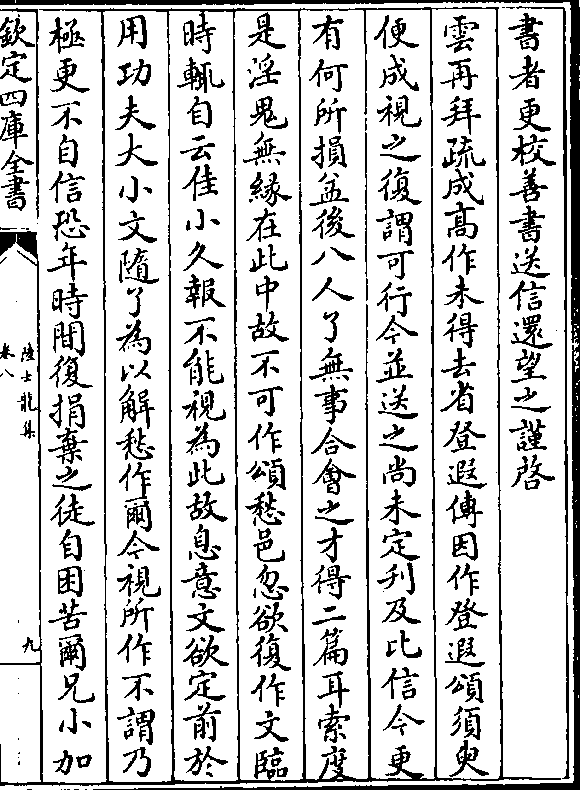 書者更校善書送信還望之謹啓
雲再拜疏成髙作未得去省登遐傳因作登遐頌須臾
便成視之復謂可行今並送之尚未定利及比信今更
有何所損益後八人了無事合㑹之才得二篇耳索度
是淫鬼無縁在此中故不可作頌愁邑忽欲復作文臨
時輒自云佳小久報不能視為此故息意文欲定前於
用功夫大小文隨了為以解愁作爾今視所作不謂乃
極更不自信恐年時間復捐棄之徒自困苦爾兄小加
欽定四庫全書
陸士龍集
卷八
九